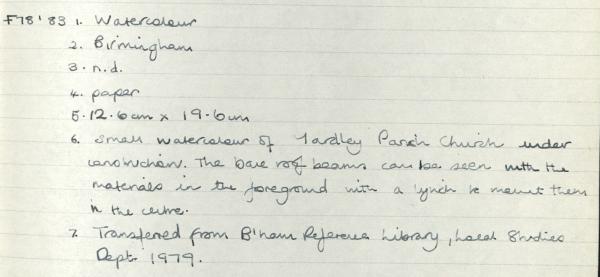 F78'83 1. Watercolour
2. Birmingham
3. n.d.
4. paper
5. 12.6cm x 19.6cm
6. Small watercolour of Yardley Parish Church under
construction. The bare roof beams can be seen with the
materials in the foreground with a lynch to mount them
in the centre.
7. Transferred from B'ham Reference Library, Local Studies
Dept. 1979.